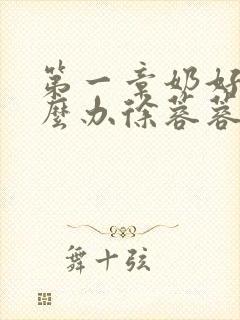 第一章奶好
麼办徐蓉蓉
舞十弦